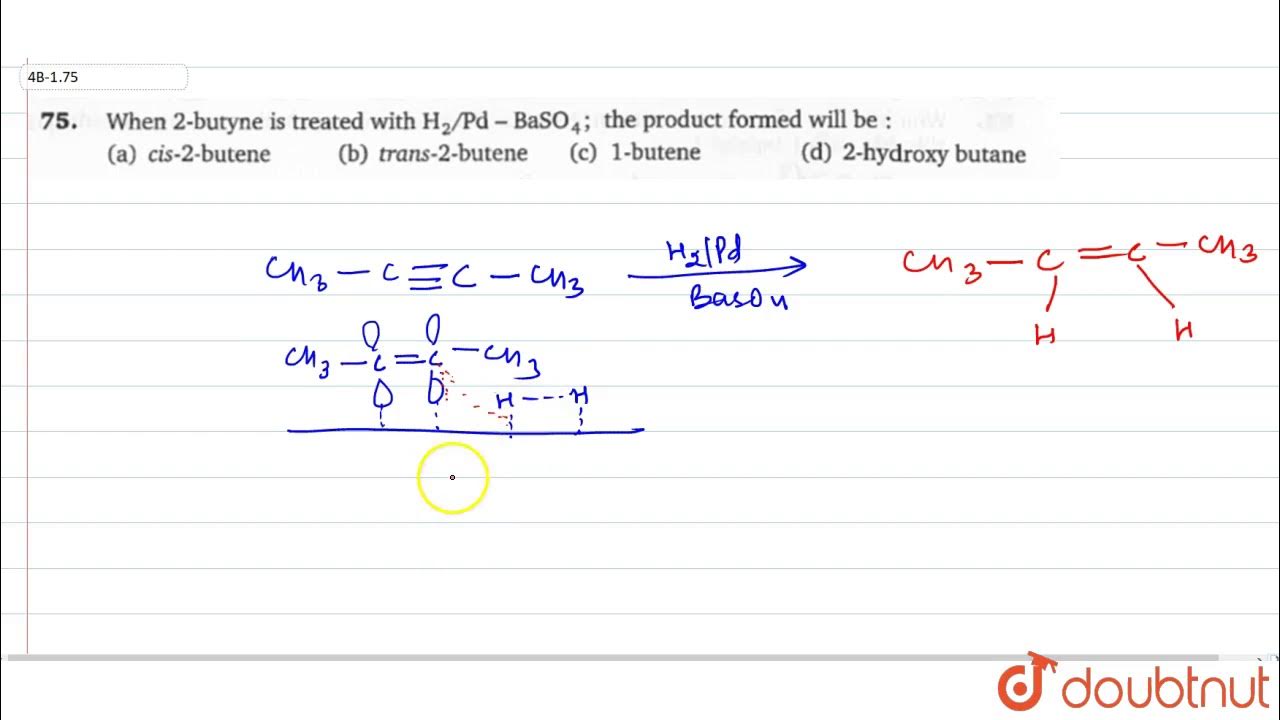 4B-1.75
75. When 2-butyne is treated with H₂/Pd – BaSO₄; the product formed will be :
(a) cis-2-butene (b) trans-2-butene (c) 1-butene (d) 2-hydroxy butane
CH₃ — C ≡ C — CH₃
H₂/Pd
BaSO₄
CH₃ — C = C — CH₃
H H
CH₃ — C = C — CH₃
H ---- H
doubtnut